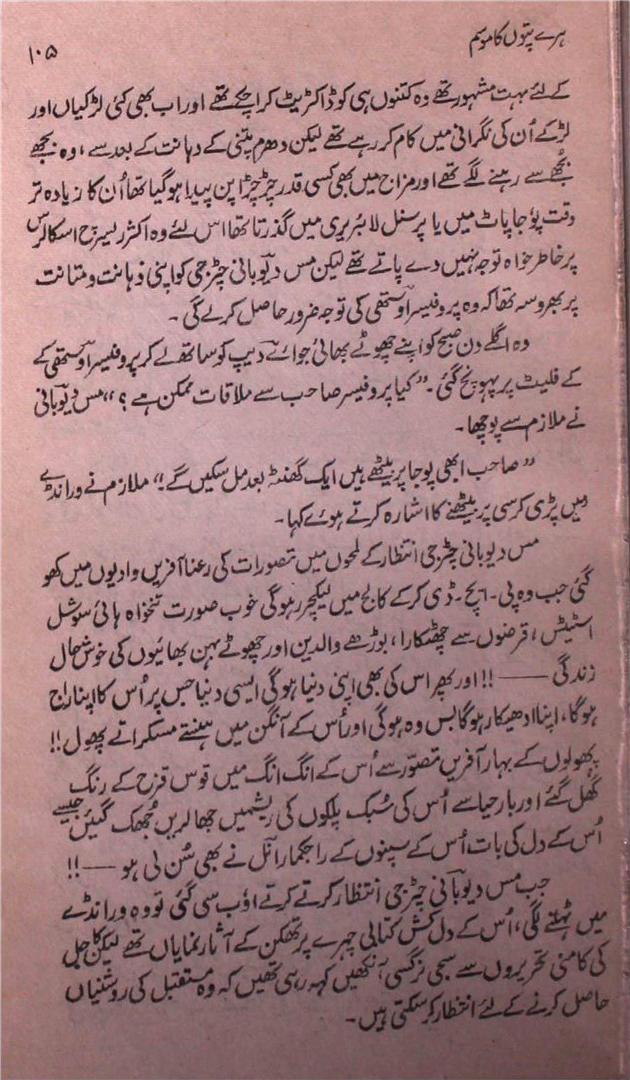 ہرے پتوں کا موسم
۱۰۵
کے لئے بہت مشہور تھے وہ کتنوں ہی کو ڈاکٹریٹ کرا چکے تھے اور اب بھی کئی لڑکیاں اور
لڑکے اُن کی نگرانی میں کام کر رہے تھے لیکن دھرم پتنی کے دہانت کے بعد سے، وہ بجھے
بجھے سے رہنے لگے تھے اور مزاج میں بھی کسی قدر چڑچڑاپن پیدا ہو گیا تھا اُن کا زیادہ تر
وقت پوجا پاٹ میں یا پرسنل لائبریری میں گذرتا تھا اس لئے وہ اکثر ریسرچ اسکالرس
پر خاطر خواہ توجہ نہیں دے پاتے تھے لیکن مس دیوبانی چٹرجی کو اپنی ذہانت و متانت
پر بھروسہ تھا کہ وہ پروفیسر اوستھی کی توجہ ضرور حاصل کر لے گی۔
وہ اگلے دن صبح کو اپنے چھوٹے بھائی جوائے دیپ کو ساتھ لے کر پروفیسر اوستھی کے
کے فلیٹ پر پہونچ گئی۔ ”کیا پروفیسر صاحب سے ملاقات ممکن ہے؟“ مس دیوبانی
نے ملازم سے پوچھا۔
”صاحب ابھی پوجا پر بیٹھے ہیں ایک گھنٹہ بعد مل سکیں گے!“ ملازم نے ورانڈے
میں پڑی کرسی پر بیٹھنے کا اشارہ کرتے ہوئے کہا۔
مس دیوبانی چٹرجی انتظار کے لمحوں میں تصورات کی رعنا آفریں وادیوں میں کھو
گئی جب وہ پی۔ایچ۔ڈی کر کے کالج میں لیکچرر ہوگی خوب صورت تنخواہ ہائی سوشل
اسٹیٹس، قرضوں سے چھٹکارا، بوڑھے والدین اور چھوٹے بہن بھائیوں کی خوش حال
زندگی ——!! اور پھر اس کی بھی اپنی دنیا ہوگی ایسی دنیا جس پر اُس کا اپنا راج
ہوگا، اپنا ادھیکار ہوگا بس وہ ہوگی اور اُس کے آنگن میں ہنستے مسکراتے پھول!!
پھولوں کے بہار آفریں تصوّر سے اُس کے انگ انگ میں قوس قزح کے رنگ
گھل گئے اور بار حیا سے اُس کی سُبک پلکوں کی ریشمیں جھالریں جُھک گئیں جیسے
اُس کے دل کی بات اُس کے سپنوں کے راجکمار اتل نے بھی سُن لی ہو ——!!
جب مس دیوبانی چٹرجی انتظار کرتے کرتے اوٗب سی گئی تو وہ ورانڈے
میں ٹہلنے لگی، اُس کے دل کش کتابی چہرے پر تھکن کے آثار نمایاں تھے لیکن کاجل
کی کامنی تحریروں سے سجی نرگسی آنکھیں کہہ رہی تھیں کہ وہ مستقبل کی روشنیاں
حاصل کرنے کے لئے انتظار کر سکتی ہیں۔